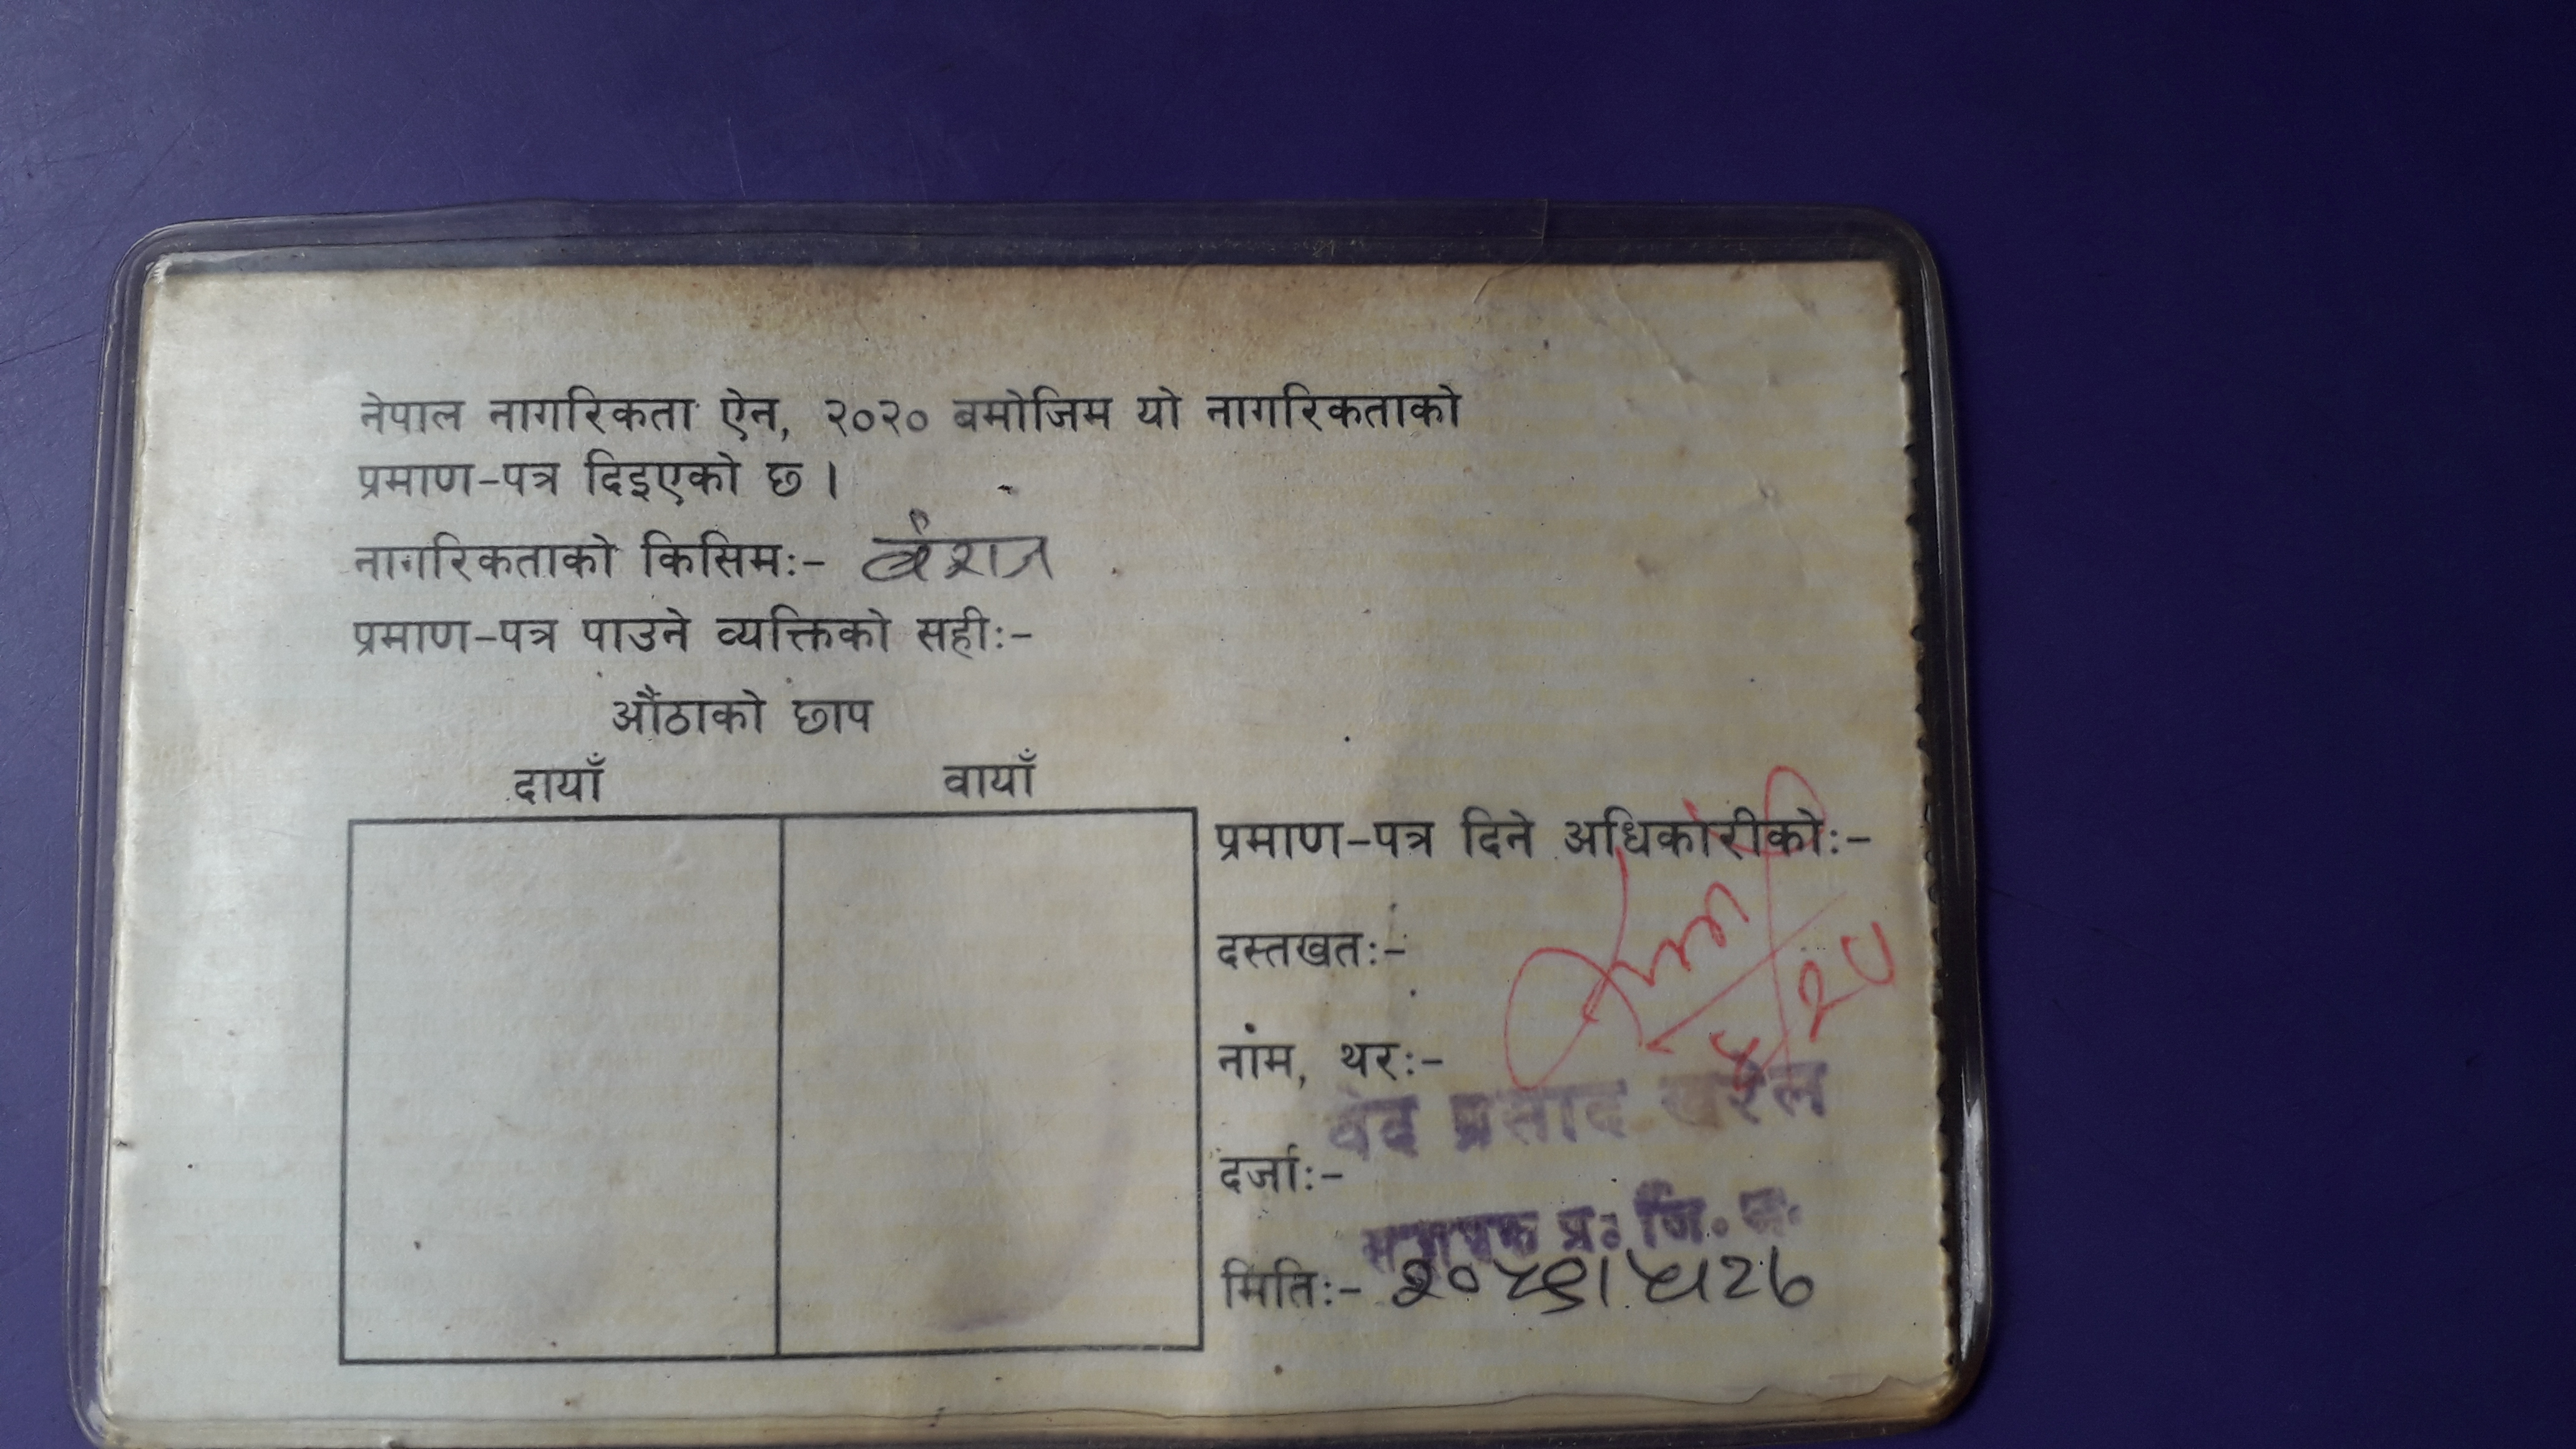 नेपाल नागरिकता ऐन, २०२० बमोजिम यो नागरिकताको
प्रमाण-पत्र दिइएको छ ।
नागरिकताको किसिमः- वंशज
प्रमाण-पत्र पाउने व्यक्तिको सहीः-
औंठाको छाप
दायाँ बायाँ
प्रमाण-पत्र दिने अधिकारीको:-
दस्तखतः-
नाम, थरः-
प्रसाद खरेल
दर्जाः-
प्र. जि. अ.
मितिः-